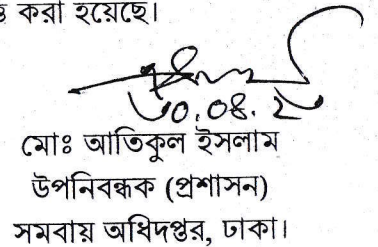 করা হয়েছে।
৩০.০৪.২
মোঃ আতিকুল ইসলাম
উপনিবন্ধক (প্রশাসন)
সমবায় অধিদপ্তর, ঢাকা।